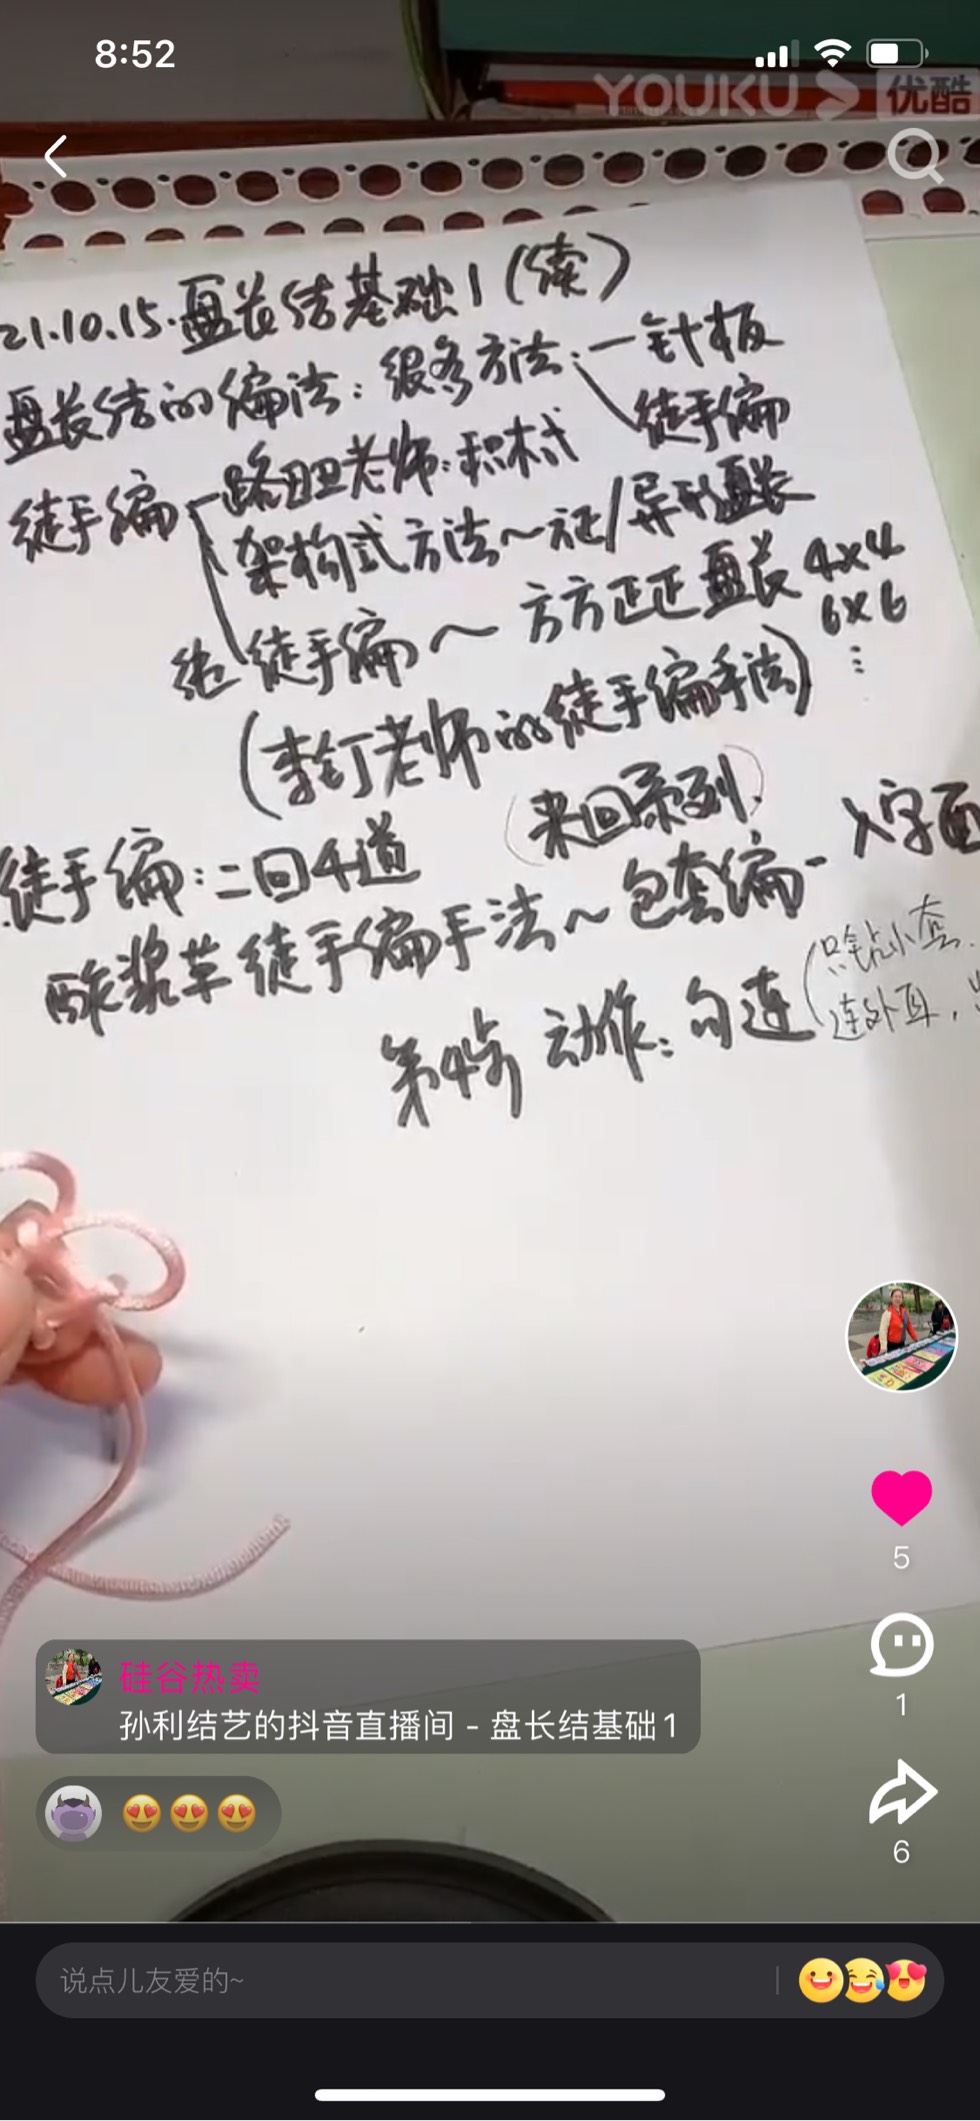 8:52
YOUKU 优酷
21.10.15.盘长结基础1(续)
盘长结的编法:很多方法:一针板
徒手编
徒手编 老师:积木式
架构式方法~ /异形盘长
徒手编~方方正正盘长4×4
6×6
⋮
(李钉老师的徒手编手法)
(来回系列)
徒手编:二回4道 入字面
酢浆草徒手编手法~包套编-
第4步 动作:勾连(只钻小套.
连外耳,
5
1
6
硅谷热卖
孙利结艺的抖音直播间 - 盘长结基础1
😍 😍 😍
说点儿友爱的~